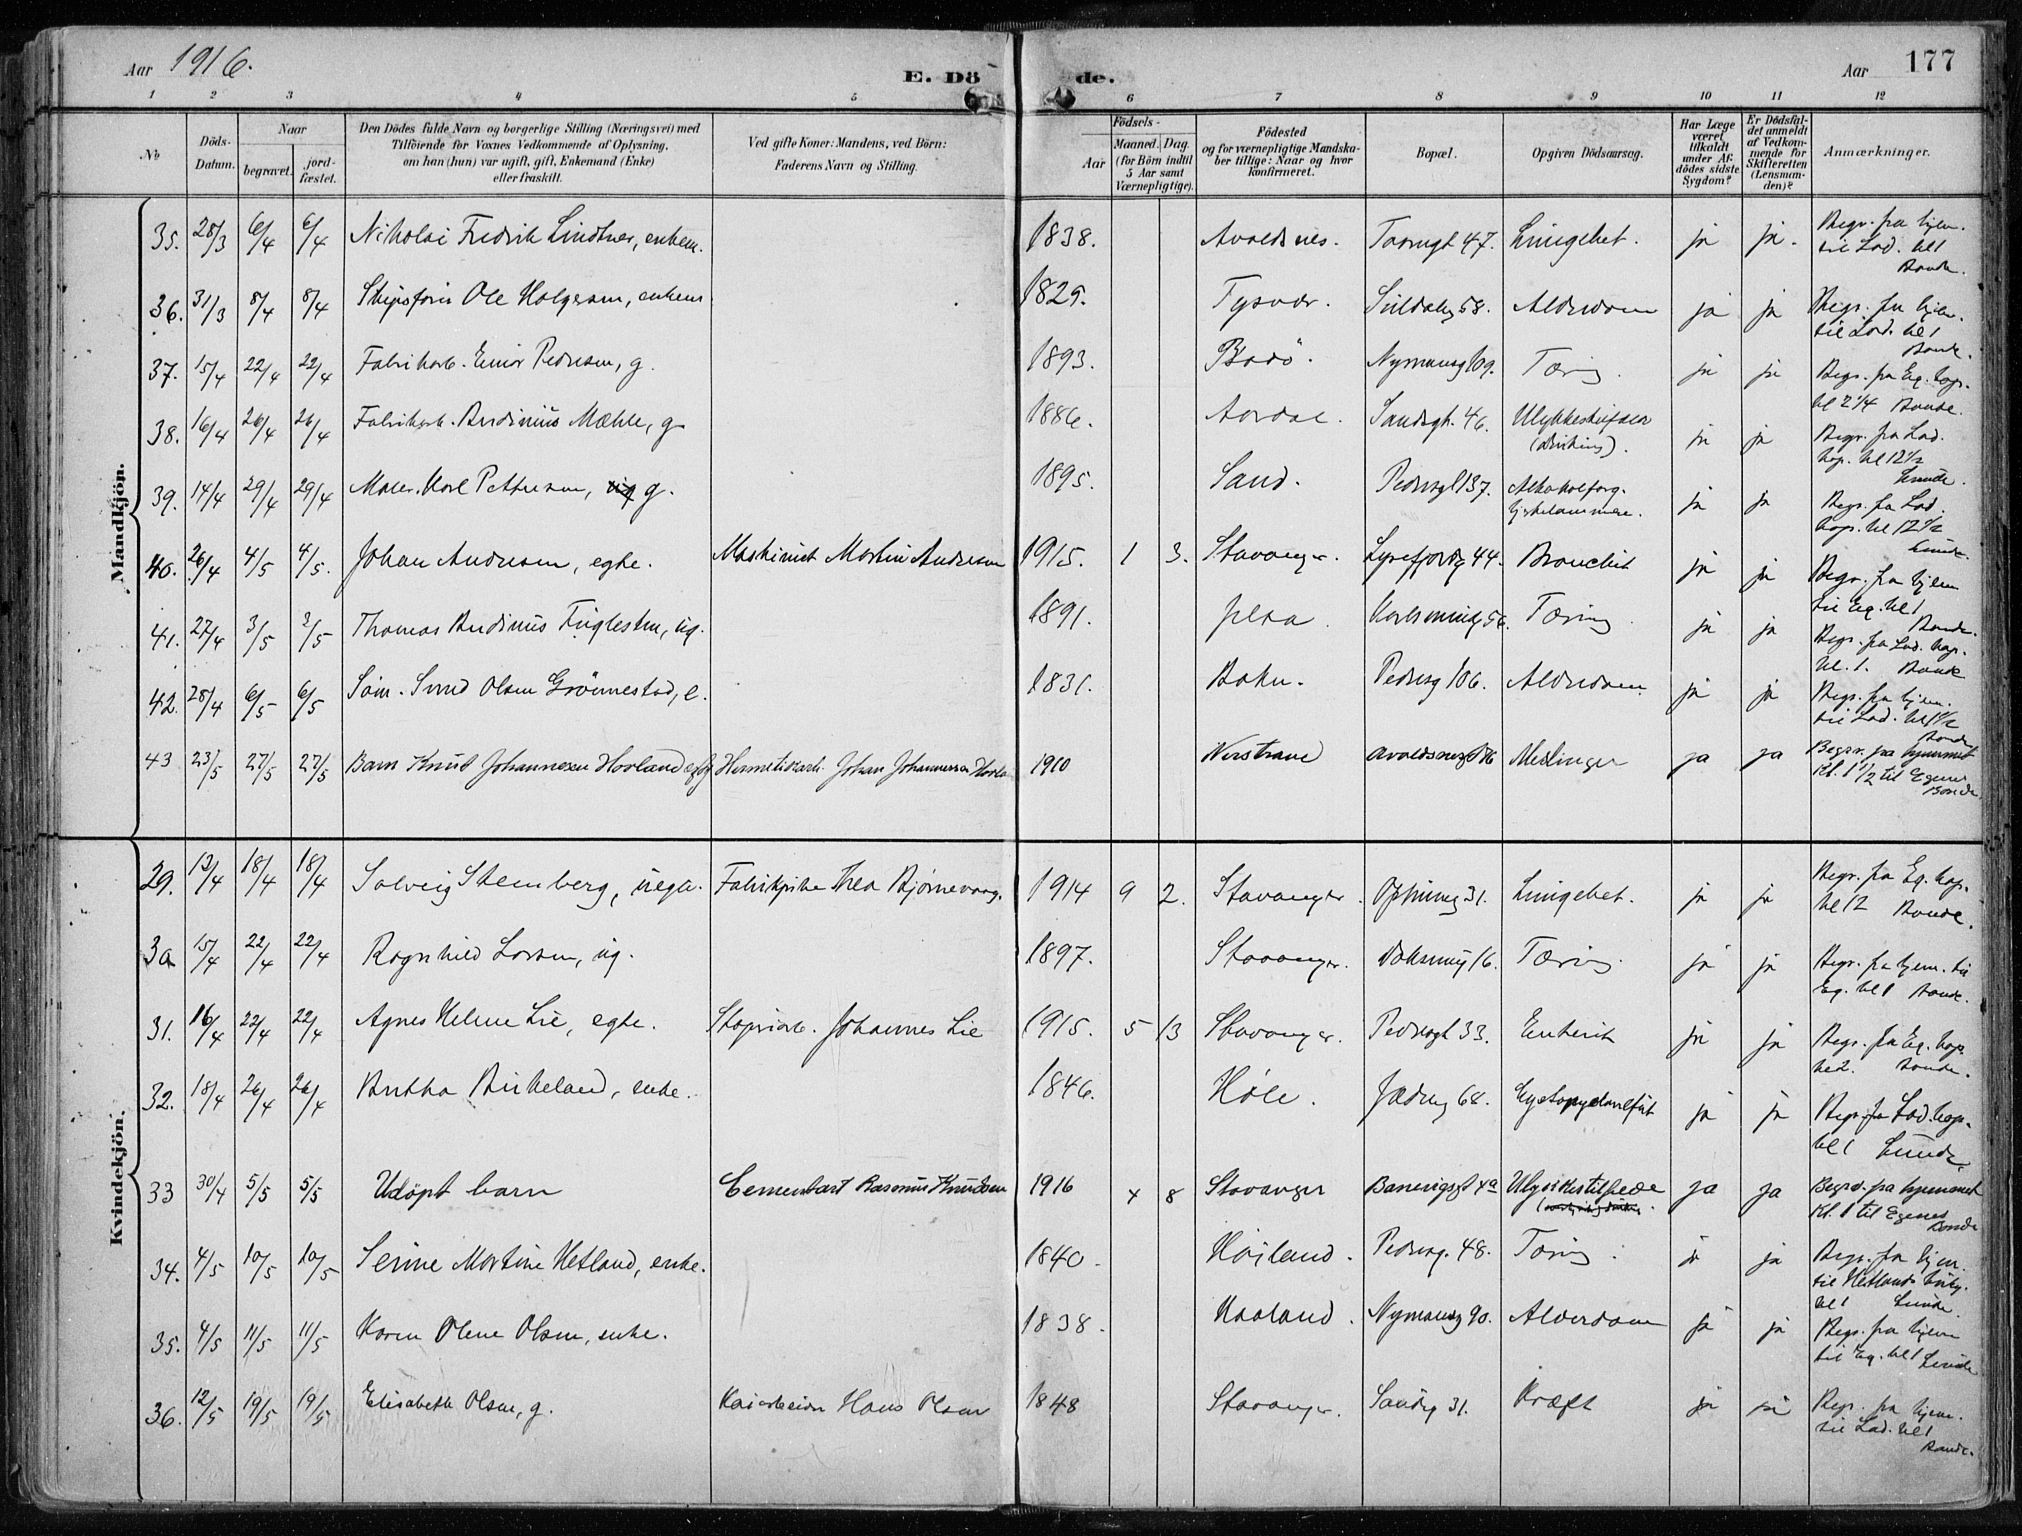 Aar 1916.
E. Dö de.
Aar 177
1 2 3 4 5 6 7 8 9 10 11 12
No
Döds-Datum.
Naar
begravet.
jord-fæstet.
Den Dödes fulde Navn og borgerlige Stilling (Næringsvei) med
Tilföiende for Voxnes Vedkommende af Oplysning,
om han (hun) var ugift, gift, Enkemand (Enke)
eller fraskilt.
Ved gifte Koner: Mandens, ved Börn:
Faderens Navn og Stilling.
Födsels-
Aar
Maaned. Dag.
(for Börn indtil
5 Aar samt
Værnepligtige).
Födested
og for værnepligtige Mandska-
ber tillige: Naar og hvor
konfirmeret.
Bopæl.
Opgiven Dödsaarsag.
Har Læge
været
tilkaldt
under Af-
dödes sidste
Sygdom?
Er Dödsfal-
det anmeldt
af Vedkom-
mende for
Skifteretten
(Lensman-
den)?
Anmærkninger.
Mandkjön.
35. 28/3 6/4 6/4 Nikolai Fredrik Lindtner, enkem. 1838. Avaldsnes. 47. Lungebet. ja ja. Begr. fra hjem. til Lad. kl 1 Bonde.
36. 31/3 8/4 8/4 Skipsfører Ole Holgersen, enkem 1825. Tysvær. Suldalsg 58. Alderdom ja ja Begr. fra hjem. til Lad. kl 1 Bonde.
37. 15/4 22/4 22/4 Fabrikarb. Einar Pedersen, g. 1893. Bodö. Nymansg 109. Tæring. ja ja Begr. fra Eg. kap. kl 2 1/4 Bonde.
38. 16/4 26/4 26/4 Fabrikarb. Berdinius Mæhle, g 1886. Aardal. Sandsgt. 46. Ulykkestilfælde (drukning). ja ja Begr. fra Lad. kap. kl 12 1/2 Lunde.
39. 14/4 29/4 29/4 Maler. Karl Pettersen, g. 1895. Sand. Pedersgt 137. Alkoholforg. hjertelammelse. ja ja Begr. fra Lad. kap. kl 12 1/2 Lunde.
40. 26/4 4/5 4/5. Johan Andresen, egte. Maskinist Martin Andresen 1915. 1 3. Stavanger. Lysefjordg 44. Bronchit ja ja Begr. fra hjem til Eg. kl 1 Bonde.
41. 27/4 3/5 3/5 Thomas Berdinius Fuglesten, ug. 1891. Jelsa. 56. Tæring. ja ja Begr. fra Lad. kap. kl. 1. Bonde
42. 28/4 6/5 6/5 Søm. Svend Olsen Grönnestad, e. 1831. Bokn. Pedersg 106. Alderdom ja ja Begr. fra hjem. til Lad. kl 1 1/2 Bonde
43 23/5 27/5 27/5 Barn Knut Johannesen Hovland egte Hermetikarb. Johan Johannessen Hovland 1910 Nerstrand Avaldsnesgt Meslinger ja ja Begrav. fra hjemmet Kl. 1 1/2 til Egenes Bonde.
Kvindekjön.
29. 13/4 18/4 18/4 Solveig Stenberg, uegte. Fabrikpike Thea Bjørnevaag. 1914 9 2. Stavanger. 31. Lungebet. ja ja Begr. fra Eg. kap. kl 12 Bonde.
30 15/4 22/4 22/4 Ragnhild Larsen, ug. 1897. Stavanger. 16. Tæring. ja ja Begr. fra hjem. til Eg. kl 1 Bonde.
31. 16/4 22/4 22/4 Agnes Helene Lie, egte. Støperiarb. Johannes Lie 1915. 5 13 Stavanger. Pedersgt 33. Enterit ja ja Begr. fra Eg. kap. kl 2. Bonde.
32. 18/4 26/4 26/4 Bertha Birkeland, enke. 1846. Höle. Jædreg 68. ja ja Begr. fra Lad. kap. kl 1 Lunde.
33 30/4 5/5 5/5 Udöpt barn Cementarb Rasmus Knudsen 1916 4 8 Stavanger Banevigsgt 4a Ulykkestilfælde ja ja Begrav. fra hjemmet Kl. 1 til Egenes Bonde
34. 4/5 10/5 10/5 Serine Martine Hetland, enke. 1840. Höiland. Pedersg. 48. Tæring. ja ja Begr. fra hjem. til Hetlands kirkeg. kl 1 Lunde.
35. 4/5 11/5 11/5 Karen Olene Olsen, enke. 1838. Haaland. Nymansg 90. Alderdom ja ja Begr. fra hjem til Eg. kl 1 Lunde
36. 12/5 19/5 19/5 Elisabeth Olsen, g. Kaiarbeider Hans Olsen 1848 Stavanger. Sandsg 31. Kræft ja ja Begr. fra hjem. til Lad. kl 1 Bonde.